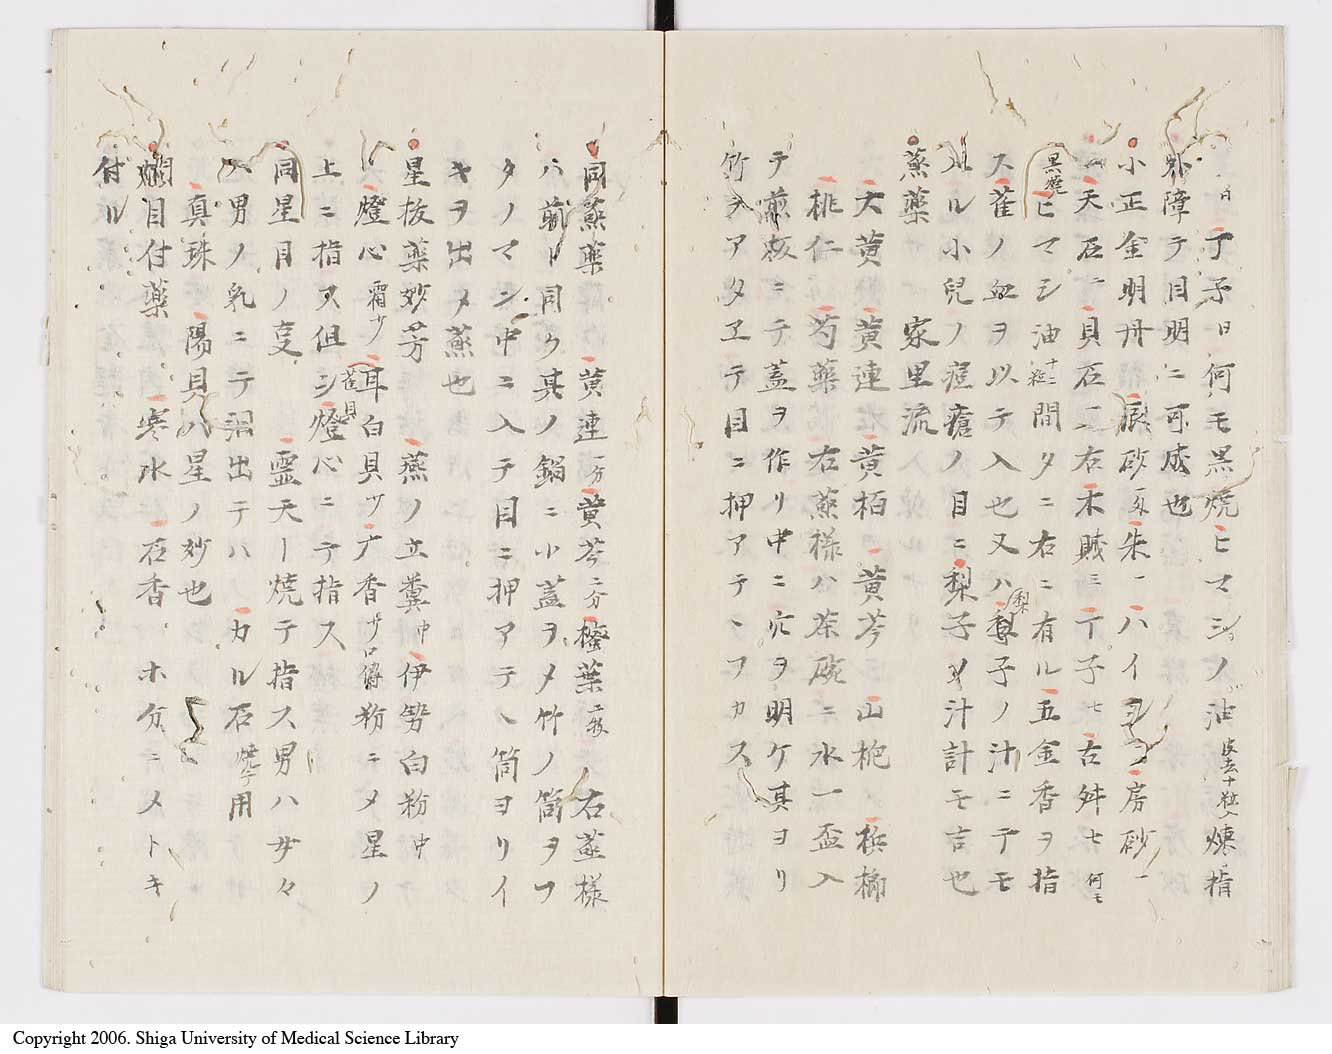 丁子日何モ黒焼ヒマシノ油皮去十粒煉指
外障テ目明ニ可成也
小正金明丹 辰砂一匁朱一ハイヨウ房砂一
天石二貝石二右木賊三丁子七古舛七何モ
黒焼ヒマシ油十二粒間タニ右ニ有ル五金香ヲ指
ス雀ノ血ヲ以テ入也又ハ梨子ノ汁ニテモ
ル小兒ノ痘瘡ノ目ニ梨子ノ汁計モ吉也
蒸藥 家里流
大黄 黄連 黄柏 黄芩 山梔 檳榔
桃仁 芍藥 右蒸様ハ茶碗ニ水一盃入
テ煎扨ニテ蓋ヲ作リ中ニ穴ヲ明ケ其ヨリ
竹ヲアタヱテ目ニ押アテヽフカス
同蒸藥 黄連一分黄芩二分 葉二枚 右蒸様
ハ前ト同ク其ノ鍋ニ小蓋ヲメ竹ノ筒ヲフ
タノマン中ニ入テ目ニ押アテヽ筒ヨリイ
キヲ出メ蒸也
星抜藥妙芳 燕ノ立糞中伊勢白粉中
燈心霜少ノ耳白貝少 香サ口傳粉ニメ星ノ
上ニ指ス但シ燈心ニテ指ス
同星目ノ支 霊天一焼テ指ス男ハ女々
ハ男ノ乳ニテ 出テハノカル石焼テ用
真珠陽貝八星ノ妙也
爛目付藥 寒水 石香 ホ分ニメトキ
付ル
Copyright 2006. Shiga University of Medical Science Library